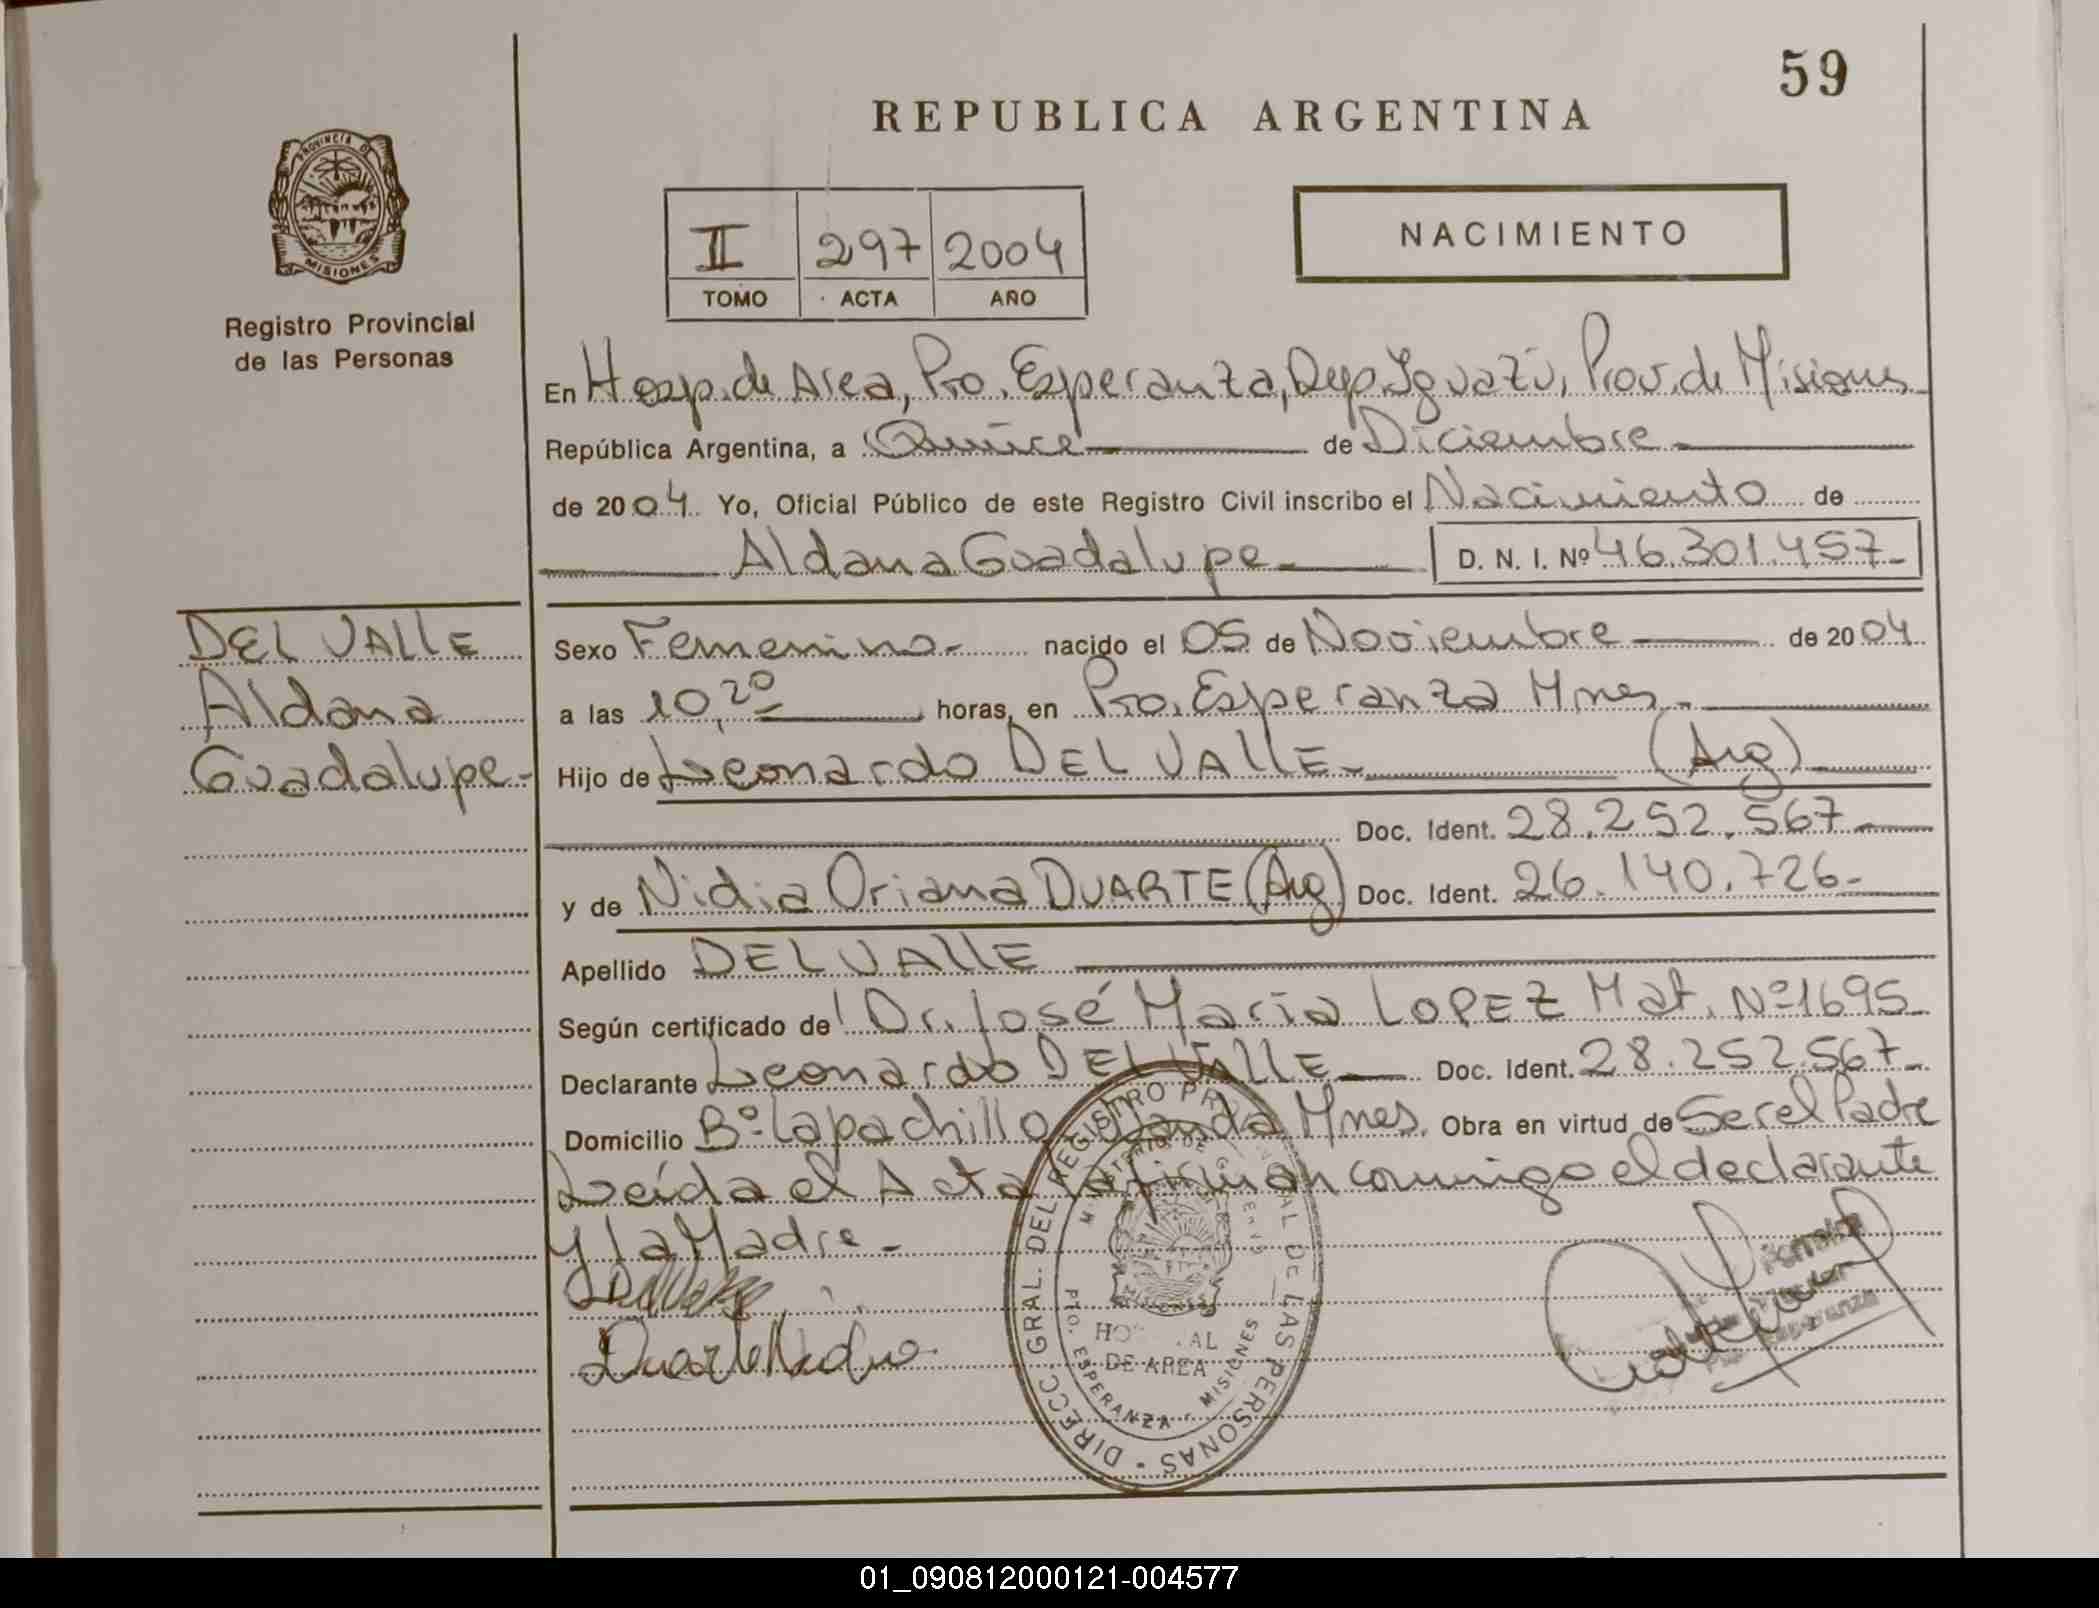 59
REPUBLICA ARGENTINA
PROVINCIA DE
MISIONES
Registro Provincial
de las Personas
II 297 2004
TOMO ACTA AÑO
NACIMIENTO
En Hosp. de Area, Pto. Esperanza, Dep. Iguazú, Prov. de Misiones
República Argentina, a Quince de Diciembre
de 2004 Yo, Oficial Público de este Registro Civil inscribo el Nacimiento de
Aldana Guadalupe D. N. I. Nº 46.301.457
DEL VALLE
Aldana
Guadalupe
Sexo Femenino nacido el 05 de Noviembre de 2004
a las 10,20 horas, en Pto. Esperanza Mnes.
Hijo de Leonardo DEL VALLE (Arg)
Doc. Ident. 28.252.567
y de Nidia Oriana DUARTE (Arg) Doc. Ident. 26.140.726
Apellido DEL VALLE
Según certificado de Dr. José María LOPEZ Mat. Nº 1695
Declarante Leonardo DEL VALLE Doc. Ident. 28.252.567
Domicilio Bº Lapachillo Wanda Mnes. Obra en virtud de Ser el Padre
Leída el Acta la firman conmigo el declarante
y la Madre
DIRECC. GRAL. DEL REGISTRO PROVINCIAL DE LAS PERSONAS
MINISTERIO DE GOBIERNO
MISIONES
HOSPITAL
DE AREA
PTO. ESPERANZA - MISIONES
01_090812000121-004577